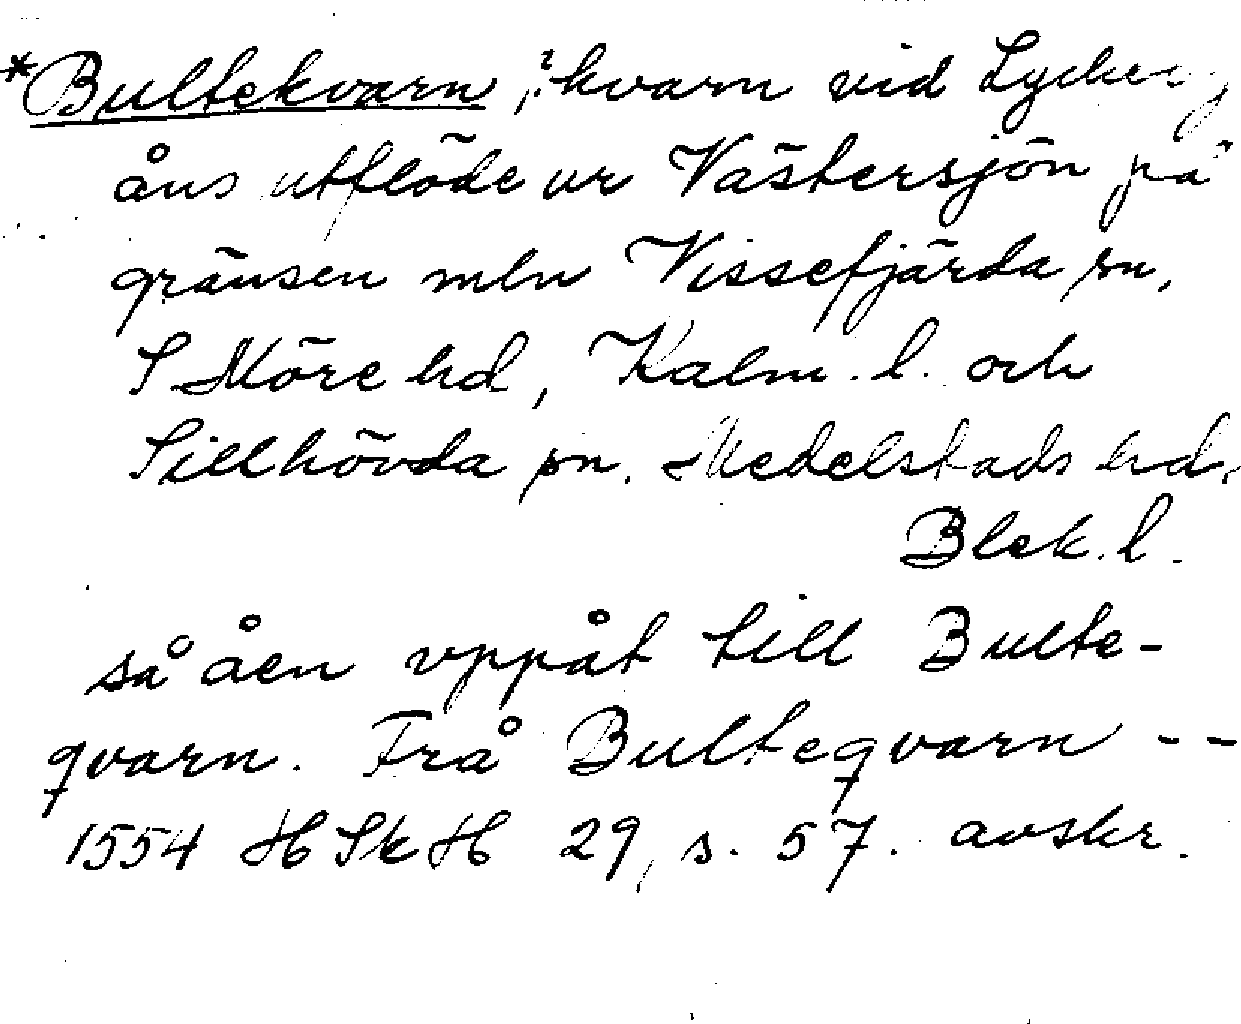 *Bultekvarn, ? kvarn vid Lyckeby
åns utflöde ur Västersjön på
gränsen mln Vissefjärda sn,
S Möre hd, Kalm. l. och
Sillhövda sn. Medelstads hd.
Blek. l.
så åen vppåt till Bulte-
qvarn. Frå Bulteqvarn --
1554 HSkH 29, s. 57. avskr.